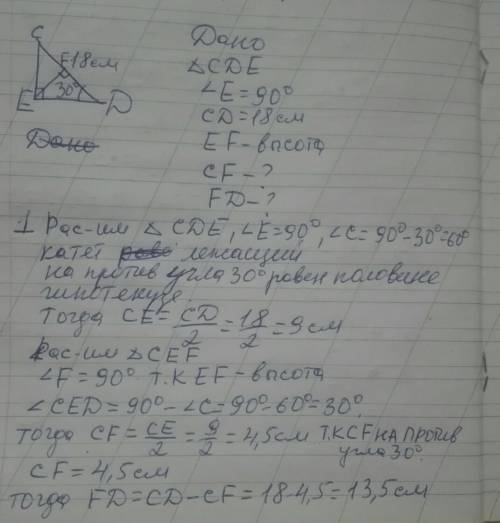 C
F 18см
30°
E D
Дано
Дано
△CDE
∠E=90°
CD=18см
EF-высота
CF-?
FD-?
1 Рас-им △ CDE, ∠E=90°, ∠C=90°-30°=60°
катет лежащий
на против угла 30° равен половине
гипотенузе.
Тогда CE=CD/2=18/2=9 см
Рас-им △CEF
∠F=90° т.к EF-высота
∠CED=90°-∠C=90°-60°=30°
тогда CF=CE/2=9/2=4,5см т.к CF на против
угла 30°.
CF=4,5см
тогда FD=CD-CF=18-4,5=13,5см